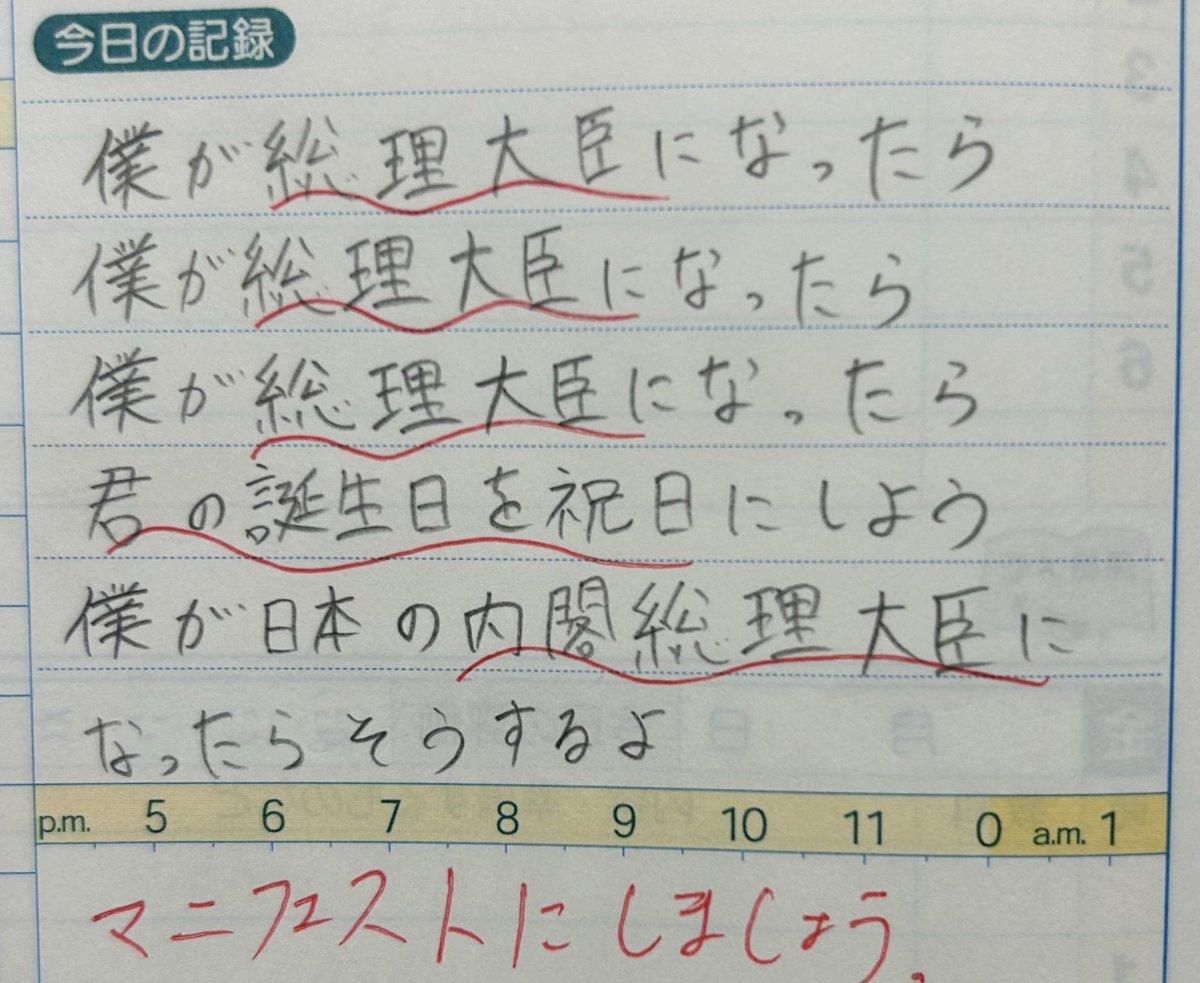 今日の記録
僕が総理大臣になったら
僕が総理大臣になったら
僕が総理大臣になったら
君の誕生日を祝日にしよう
僕が日本の内閣総理大臣に
なったらそうするよ
p.m. 5 6 7 8 9 10 11 0 a.m. 1
マニフェストにしましょう。